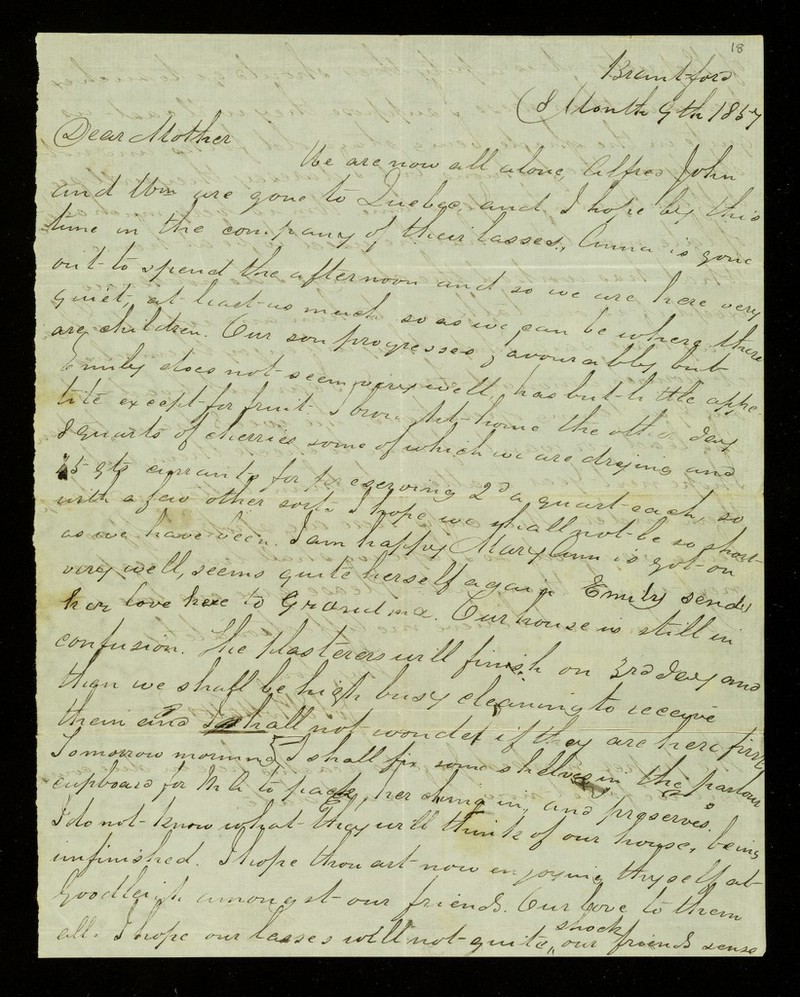 18
Brantford
8 Month 9th 1857
Dear Mother
We are now all alone, Alfred John
and Wm are gone to Quebec, and I hope by this
time in the company of their lasses, Anna is gone
out to spend the afternoon and so we are here very
quiet, at least as much so as we can be where there
are children. Our son progresses favourably, but
Emily does not seem very well, has but little appe-
tite except for fruit I brought home the other day
8 quarts of cherries some of which we are drying and
15 qts currants for preserving 2d a quart each, so
with a few other sorts I hope we shall not be so short
as we have been. I am happy Mary Ann is got on
very well, seems quite herself again Emily sends
her love here to Grandma. Our house is still in
confusion. The Plasterers will finish on 3rd day and
then we shall be high busy cleaning to receive
them and I shall not wonder if they are here first
Tomorrow morning I shall fix some shelves in the parlour
cupboard for to pack her china in, and preserves.
I do not know what they will think of our house, being
unfinished. I hope thou art now enjoying thyself at
Goodleigh amongst our friends. Our love to them
all. I hope our lasses will not quite shock our friends sense